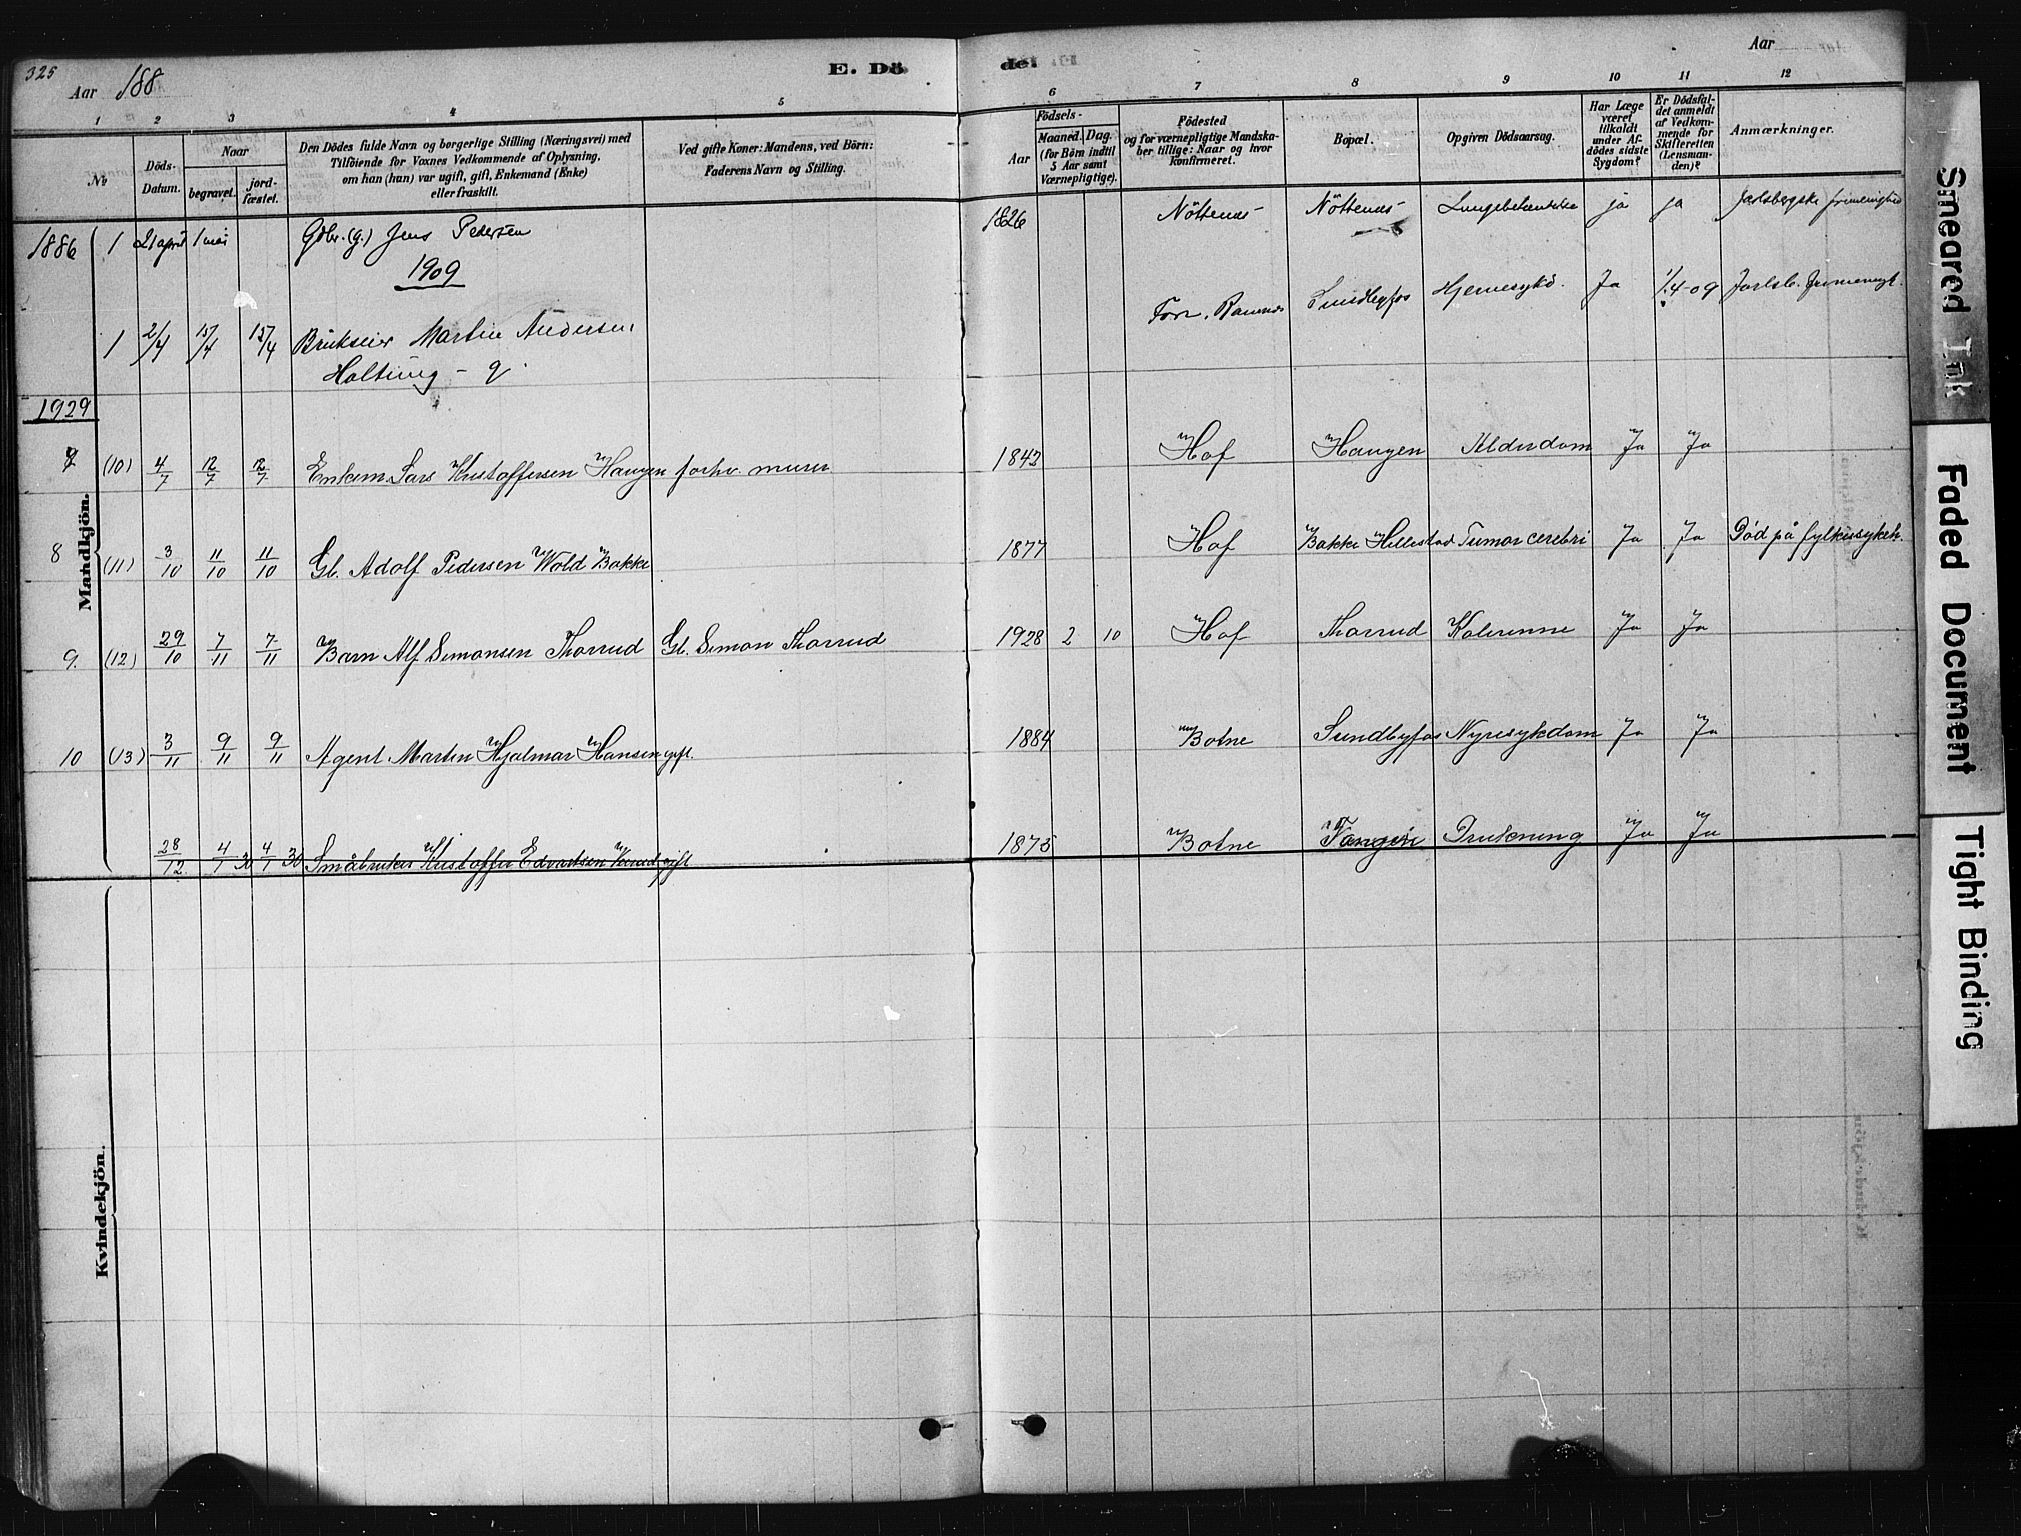 325
Aar 188
E. Dö
de.
Aar
1 2 3 4 5 6 7 8 9 10 11 12
No
Döds-Datum.
Naar
begravet.
jord-fæstet.
Den Dödes fulde Navn og borgerlige Stilling (Næringsvei) med
Tilföiende for Voxnes Vedkommende af Oplysning,
om han (hun) var ugift, gift, Enkemand (Enke)
eller fraskilt.
Ved gifte Koner: Mandens, ved Börn:
Faderens Navn og Stilling.
Födsels-
Aar
Maaned. Dag.
(for Börn indtil
5 Aar samt
Værnepligtige).
Födested
og for værnepligtige Mandska-
ber tillige: Naar og hvor
konfirmeret.
Bopæl.
Opgiven Dödsaarsag.
Har Læge
været
tilkaldt
under Af-
dödes sidste
Sygdom?
Er Dödsfal-
det anmeldt
af Vedkom-
mende for
Skifteretten
(Lensman-
den)?
Anmærkninger.
1886 1 21 april 1 mai Gdbr. (g.) Jens Pedersen 1826 Nöttenæs Nöttenæs Lungebetændelse ja ja Jarlsbergske frimenighed
1909
1 2/4 15/4 15/4 Brukseier Martin Andersen Ramnes Sundbyfos Hjernesykd. Ja 1/4-09 Jarlsb. frimenigt.
Holtung - g.
1929
7 (10) 4/7 12/7 12/7 Enkem. Lars Kristoffersen Haugen forhv. murer 1842 Hof Haugen Alderdom Ja Ja
8 (11) 3/10 11/10 11/10 Gb. Adolf Pedersen Wold Bakke 1877 Hof Bakke Hillestad Tumor cerebri Ja Ja Död på fylkessykeh.
9. (12) 29/10 7/11 7/11 Barn Alf Simonsen Thorrud Gb. Simon Thorrud 1928 2 10 Hof Thorrud Kolerinne Ja Ja
10 (13) 3/11 9/11 9/11 Agent Martin Hjalmar Hansen gift. 1884 Botne Sundbyfos Nyresykdom Ja Ja
28/12. 4/1 30 4/1 30 Småbruker Kristoffer Edvartsen gift 1875 Botne Tangen Drukning Ja Ja
Mandkjön.
Kvindekjön.
Smeared Ink
Faded Document
Tight Binding